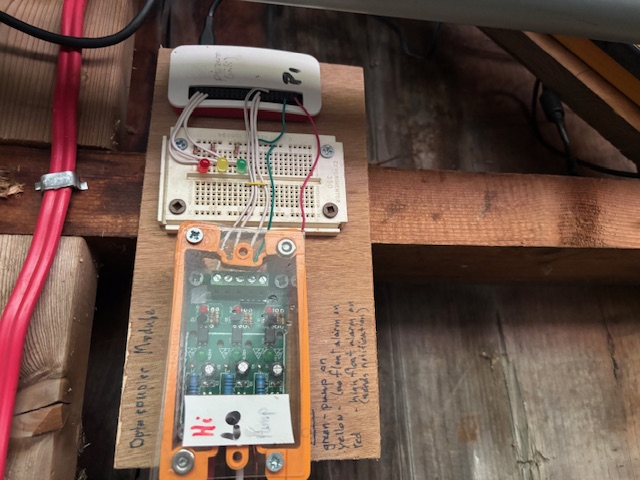 Optocoupler Module
Hi
Lo
Pump
green - pump on
yellow - low float alarm on
red - high float alarm on
(sends notification)
Pi
EXPERIMENTOR